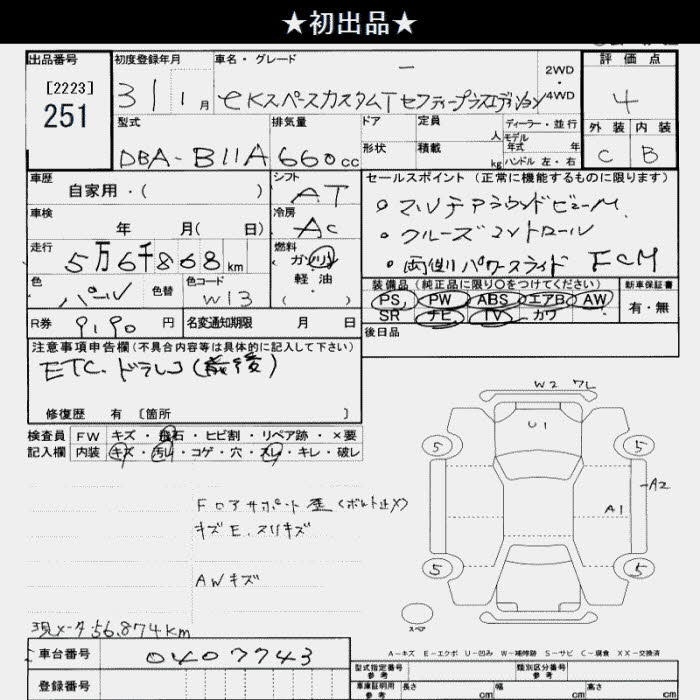 ★初出品★
出品番号 初度登録年月 車名・グレード 評価点
[2223]
251
31 1月 eKスペースカスタムT セフティープラスエディション 2WD・4WD 4
型式 排気量 ドア 定員 人 ディーラー・並行 外装 内装
DBA-B11A 660cc 形状 積載 kg モデル年式 年 ハンドル 左・右 C B
車歴 シフト セールスポイント(正常に機能するものに限ります)
自家用・( ) AT 。マルチアラウンドビューM.
車検 年 月( 日) 冷房 AC 。クルーズコントロール
走行 5万6千868km 燃料 ガソリン 。両側パワースライド FCM
色 パール 色替 色コード W13 軽油 ( ) 装備品(純正品に限り〇をつけてください) 新車保証書
PS PW ABS エアB AW 有・無
SR ナビ TV カワ
R券 9190円 名変通知期限 月 日 後日品
注意事項申告欄(不具合内容等は具体的に記入して下さい)
ETC. ドラレコ(前後)
修復歴 有 〔箇所 〕
検査員 FW キズ・飛石・ヒビ割・リペア跡・×要
記入欄 内装 キズ・汚れ・コゲ・穴・スレ・キレ・破レ
W2 フL
U1
5 5
A2
A1
Fロアサポート歪(ボルト止メ)
キズE. スリキズ
AWキズ
5 5
スペア
現メータ56.874km
A-キズ E-エクボ U-凹み W-補修跡 S-サビ C-腐食 XX-交換済
車台番号 0407743
型式指定番号 参考 類別区分番号 参考
登録番号 車庫証明用 参考 長さ cm 幅 cm 高さ cm